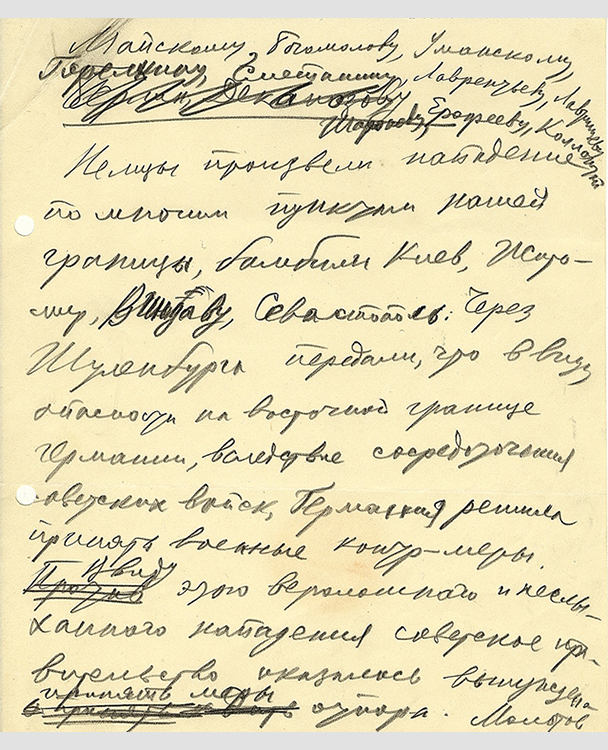 Майскому, Богомолову, Уманскому,
Сметанину, Лаврентьеву, Лаврищеву
Деканозову
Ерофееву, Коллонтай
Немцы произвели нападение
по многим пунктам нашей
границы, бомбили Киев, Жито-
мир, Севастополь. Через
Шуленбурга передали, что в виду
опасности на восточной границе
Германии, вследствие сосредоточения
советских войск, Германия решила
принять военные контр-меры.
Против ввиду этого вероломного и неслы-
ханного нападения советское пра-
вительство оказалось вынуждено
принять меры
отпора. Молотов